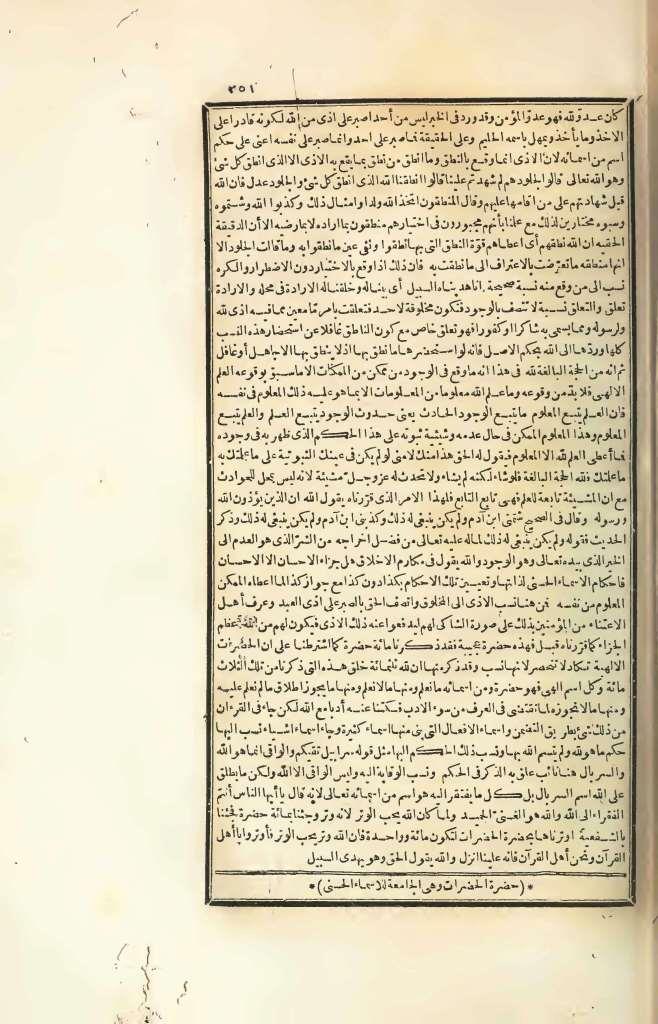 ٣٥١
كان عدوّ لله فهو عدوّ المؤمن وقد ورد فى الخبر ليس من أحد اصبر على اذى من الله لكونه قادرا على
الاخذ وما يأخذ ويمهل باسمه الحليم وعلى الحقيقة فما صبر على احد وانما صبر على نفسه اعنى على حكم
اسم من اسمائه لان الاذى انما وقع بالنطق وما انطق من نطق بما يقع به الاذى الا الذى انطق كل شئ
وهو الله تعالى قالوا الجلودهم لم شهدتم علينا قالوا انطقنا الله الذى انطق كل شئ والجلود عدل فان الله
قبل شهادتهم على من اقامها عليهم وقال المنطقون اتخذ الله ولدا وامثال ذلك وكذبوا الله وشتموه
وسبوه مختارين لذلك مع علمنا بأنهم مجبورون فى اختيارهم منطقون بما اراده لا بما رضيه الا أن الدقيقة
الخفيه ان الله نطقهم أى اعطاهم قوّة النطق التى بها نطقوا وبقى عين ما نطقوا به وما قالت الجلود الا
انها منطقه ما تعرّضت بالاعتراف الى ما نطقت به فان ذلك اذا وقع بالاختيار دون الاضطرار والكره
نسب الى من وقع منه نسبة صحيحة انا هديناه السبيل أى بينا له وخلقنا له الارادة فى محله والارادة
تعلق والتعلق نسبة لا تتصف بالوجود فتكون مخلوقة لاحد فتعلقت بامر ما معين مما فيه اذى لله
ولرسوله ومما يسمى به شاكرا وكفورا فهو تعلق خاص مع كون الناطق غافلا عن استحضار هذه النسب
كلها وردها الى الله بحكم الاصل فانه لو استحضرها ما نطق بها اذ لا ينطق بها الا جاهل أو غافل
ثم انه من الحجة البالغة لله فى هذا انه ما وقع فى الوجود من ممكن من الممكنات الا ما سبق بوقوعه العلم
الالهى فلا بد من وقوعه وما علم الله معلوما من المعلومات الا بما هو عليه ذلك المعلوم فى نفسه
فان العلم يتبع المعلوم ما يتبع الوجود الحادث يعنى حدوث الوجود يتبع العلم والعلم يتبع
المعلوم وهذا المعلوم الممكن فى حال عدمه وشيئية ثبوته على هذا الحكم الذى ظهر به فى وجوده
فما أعطى العلم لله الا المعلوم فيقول له الحق هذا منك لا منى لو لم يكن فى عينك الثبوتية على ما علمتك به
ما علمتك فلله الحجة البالغة فلو شاء لكنه لم يشاء ولا تحدث له عزوجل مشيئة لانه ليس بمحل للحوادث
مع ان المشيئة تابعة للعلم فهى تابع التابع فلهذا الامر الذى قرّرناه يقول الله ان الذين يؤذون الله
ورسوله وقال فى الصحيح شتمنى ابن آدم ولم يكن ينبغى له ذلك وكذبنى ابن آدم ولم يكن ينبغى له ذلك وذكر
الحديث فقوله ولم يكن ينبغى له ذلك لما له عليه تعالى من فضل اخراجه من الشرّ الذى هو العدم الى
الخير الذى بيده تعالى وهو الوجود والله يقول فى مكارم الاخلاق هل جزاء الاحسان الا الاحسان
فاحكام الاسماء الحسنى لذاتها وتعيين تلك الاحكام بكذا دون كذا مع جواز كذا لما اعطاه الممكن
المعلوم من نفسه فمن هنا نسب الاذى الى المخلوق واتصف الحق بالصبر على اذى العبد وعرف أهل
الاعتناء من المؤمنين بذلك على صورة الشاكى لهم ليدفعوا عنه ذلك الاذى فيكون لهم من عظم
الجزاء كما قرّرناه قبل فهذه حضرة عجيبة فقد ذكرنا مائة حضرة كما اشترطنا على ان الحضرات
الالهية تكاد لا تنحصر لانها نسب وقد ذكر منها ان لله ثلثمائة خلق هذه التى ذكرنا من تلك الثلاث
مائة وكل اسم الهى فهو حضرة ومن اسمائه ما نعلم ومنها ما لا نعلم ومنها ما يجوز اطلاق ما لم نعلم عليه
ومنها ما لا نجوزه لما تقتضى فى العرف من سوء الادب فسكتنا عنه أدبا مع الله لكن جاء فى القرءان
من ذلك شئ بطريق التضمن واسماء الافعال التى بنى منها اسماء كثيرة وجاء اسماء اشياء نسب اليها
حكم ما هو لله ولم يتسم الله بها ونسب ذلك الحكم اليها مثل قوله سرابيل تقيكم والواقى انما هو الله
والسربال هنا نائب علق به الذكر فى الحكم ونسب الوقاية اليه وليس الواقى الا الله ولكن ما يطلق
على الله اسم السربال بل كل ما يفتقر اليه هو اسم من اسمائه تعالى لانه قال يا أيها الناس أنتم
الفقراء الى الله والله هو الغنى الحميد ولما كان الله يحب الوتر لانه وتر وجئنا بمائة حضرة فجئنا
بالشفعية اوترناها بحضرة الحضرات لتكون مائة وواحدة فان الله وتر يحب الوتر فأوتروا يا أهل
القرآن ونحن أهل القرآن فانه علينا انزل والله يقول الحق وهو يهدى السبيل
*(حضرة الحضرات وهى الجامعة للاسماء الحسنى)*